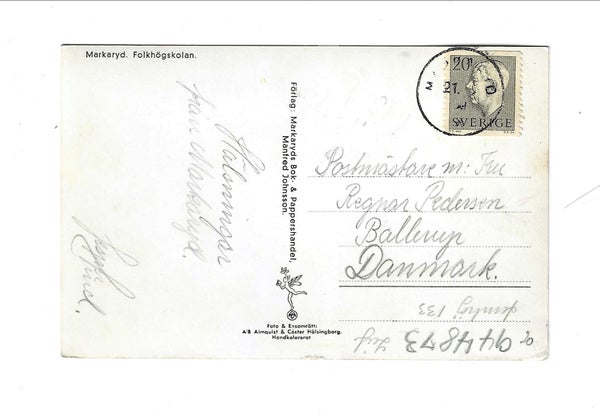 Markaryd. Folkhögskolan.
Hälsningar
från Markaryd.
Förlag: Markaryds Bok- & Pappershandel,
Manfred Johnsson.
Foto & Ensamrätt:
A/B Almquist & Cöster Hälsingborg.
Handkolorerat
20
SVERIGE
21.
Postmästare m. Fru
Regnar Pedersen
Ballerup
Danmark.
133
944873